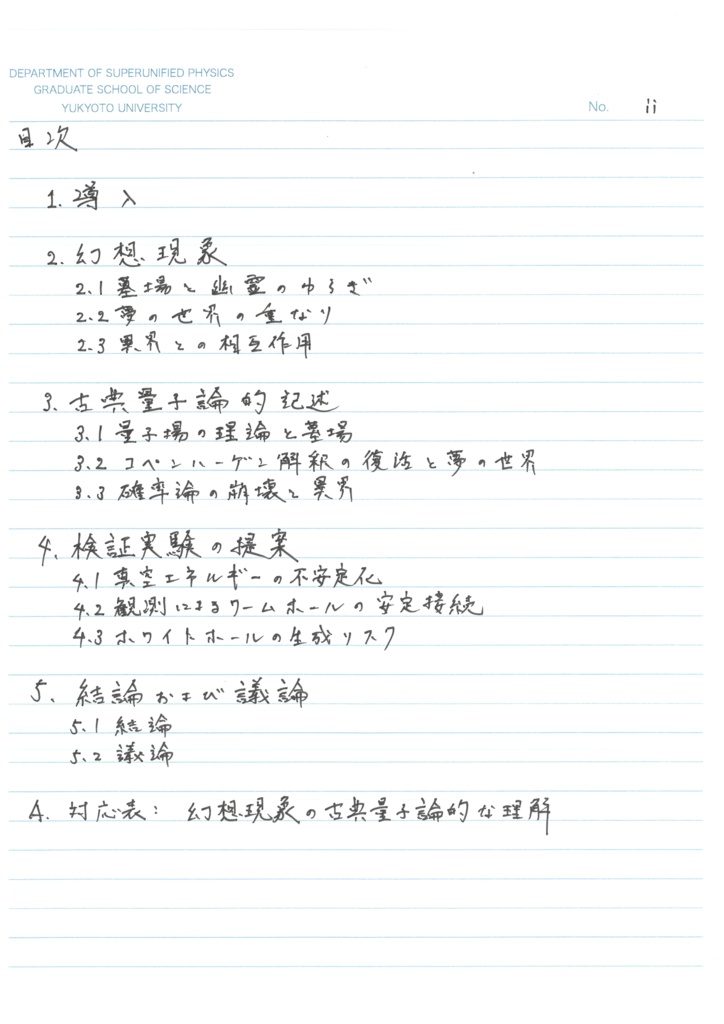 DEPARTMENT OF SUPERUNIFIED PHYSICS
GRADUATE SCHOOL OF SCIENCE
YUKYOTO UNIVERSITY
No. ii
目次
1. 導入
2. 幻想現象
2.1 墓場と幽霊のゆらぎ
2.2 夢の世界の重なり
2.3 異界との相互作用
3. 古典量子論的記述
3.1 量子場の理論と墓場
3.2 コペンハーゲン解釈の復活と夢の世界
3.3 確率論の崩壊と異界
4. 検証実験の提案
4.1 真空エネルギーの不安定化
4.2 観測によるワームホールの安定接続
4.3 ホワイトホールの生成リスク
5. 結論および議論
5.1 結論
5.2 議論
A. 対応表: 幻想現象の古典量子論的な理解